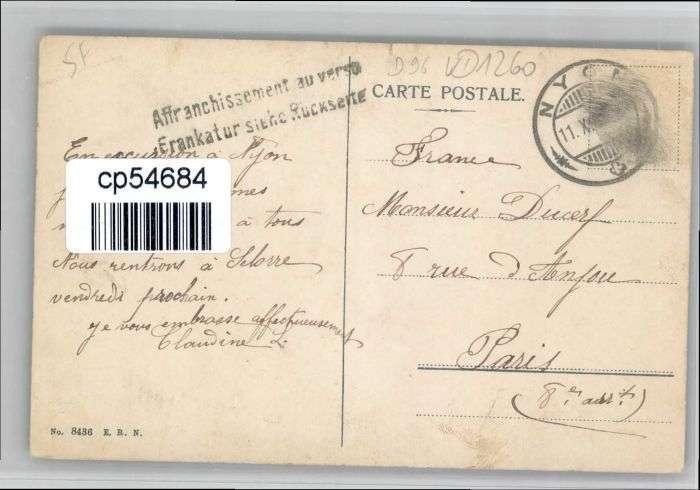 D96 VD1260
Affranchissement au verso
Frankatur siehe Rückseite
CARTE POSTALE.
NYON
11. X
En excursion à Nyon
cp54684
à tous
Nous rentrons à
vendredi prochain.
Je vous embrasse affectueusement
Claudine L.
France
Monsieur Ducerf
8 rue d'Anjou
Paris
(8e arrt)
No. 8436 E. R. N.